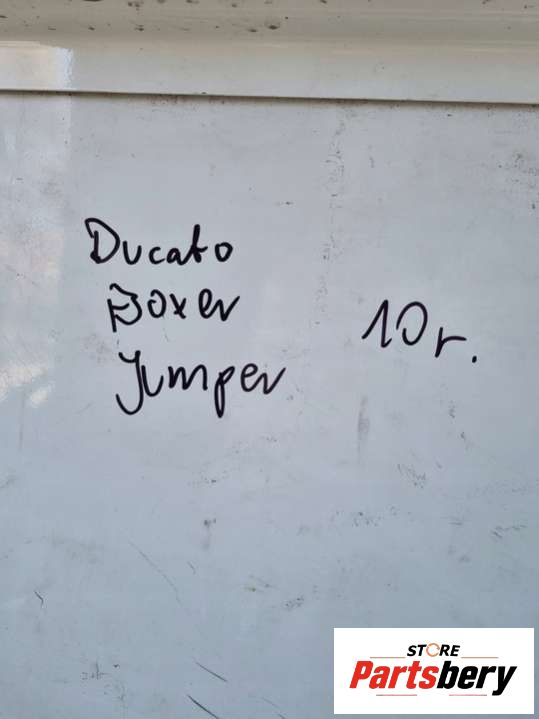 Ducato
Boxer
Jumper
10r.
STORE
Partsbery